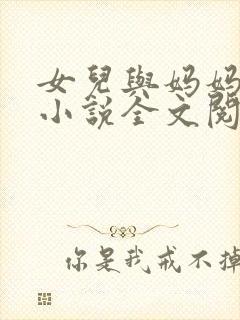 女兒與媽媽
小說全文閱
你是我戒不掉